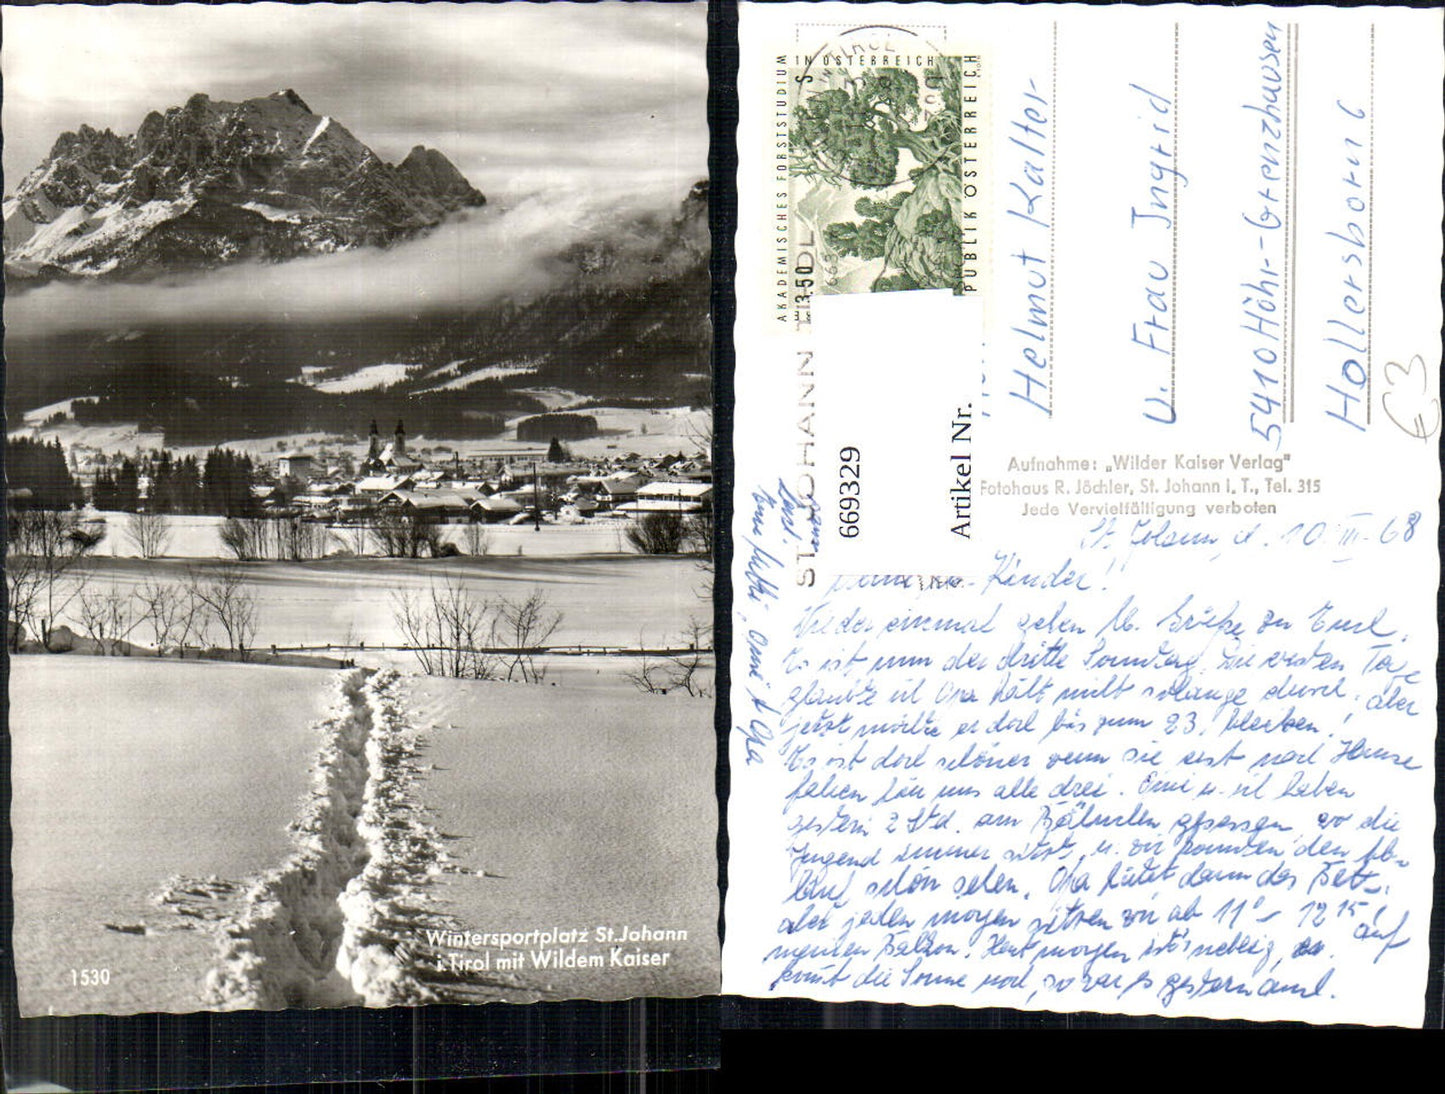 Wintersportplatz St. Johann
i. Tirol mit Wildem Kaiser
1530
AKADEMISCHES FORSTSTUDIUM
IN ÖSTERREICH
S 3.50
REPUBLIK ÖSTERREICH
ST. JOHANN TIROL
669329
Artikel Nr.
Helmut Kalter-
u. Frau Ingrid
5410 Höhr-Grenzhausen
Hollersborn 6
€3
Aufnahme: „Wilder Kaiser Verlag"
Fotohaus R. Jöchler, St. Johann i. T., Tel. 315
Jede Vervielfältigung verboten
St. Johann, d. 10. III. 68
Kinder!
Wieder einmal geben lb. Grüße zu Euch.
Es ist nun der dritte Sonntag. Die ersten Tage
glaubte ich Opa hält nicht solange durch, aber
jetzt möchte er doch bis zum 23. bleiben!
Es ist doch schöner wenn Sie erst nach Hause
fahren für uns alle drei. Omi u. ich haben
gestern 2 Std. am gesessen, wo die
Jugend immer sitzt, u. wir konnten den Ab-
lauf schön sehen. Opa hütet dann das Bett.
aber jeden morgen sitzen wir ab 11° - 12 15! auf
meinen Balkon. Heut morgen ist's neblig,
kommt die Sonne noch, so war es gestern auch.
Omi + Opa